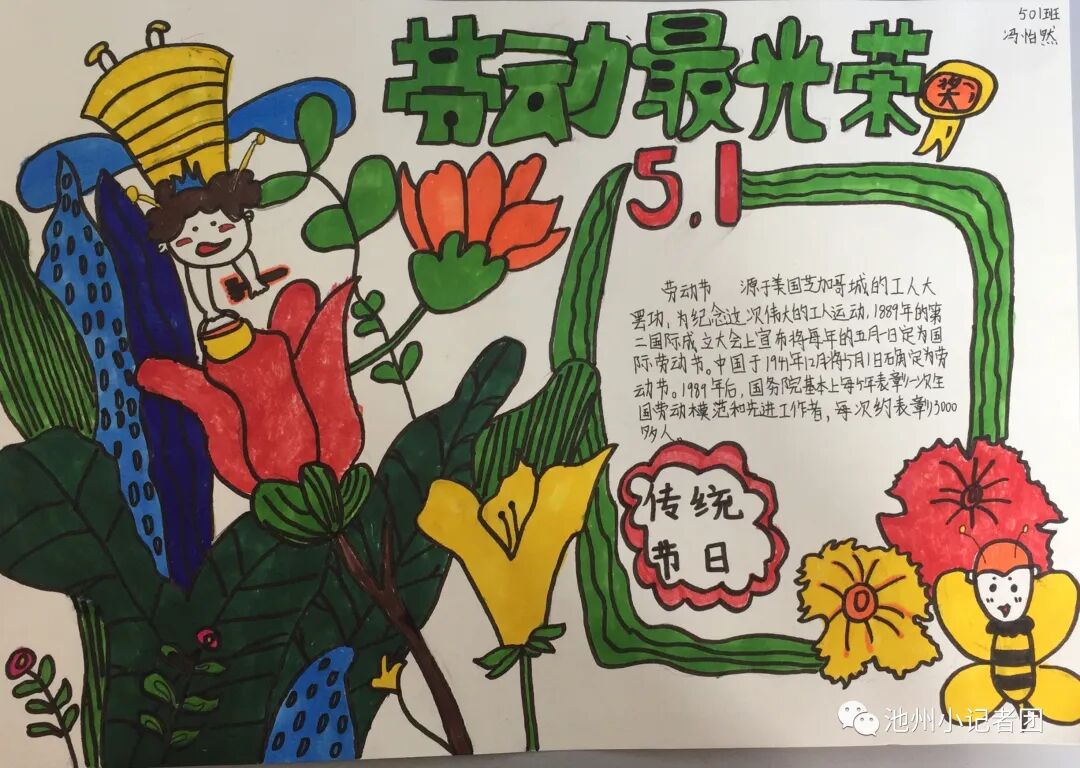 501班
冯怡然
劳动最光荣
奖
5.1
劳动节 源于美国芝加哥城的工人大
罢功,为纪念这次伟大的工人运动,1889年的第
二国际成立大会上宣布将每年的五月一日定为国
际劳动节。中国于1941年12月将5月1日确定为劳
动节。1989年后,国务院基本上每5年表彰一次全
国劳动模范和先进工作者,每次约表彰3000
多人。
传统
节日
池州小记者团